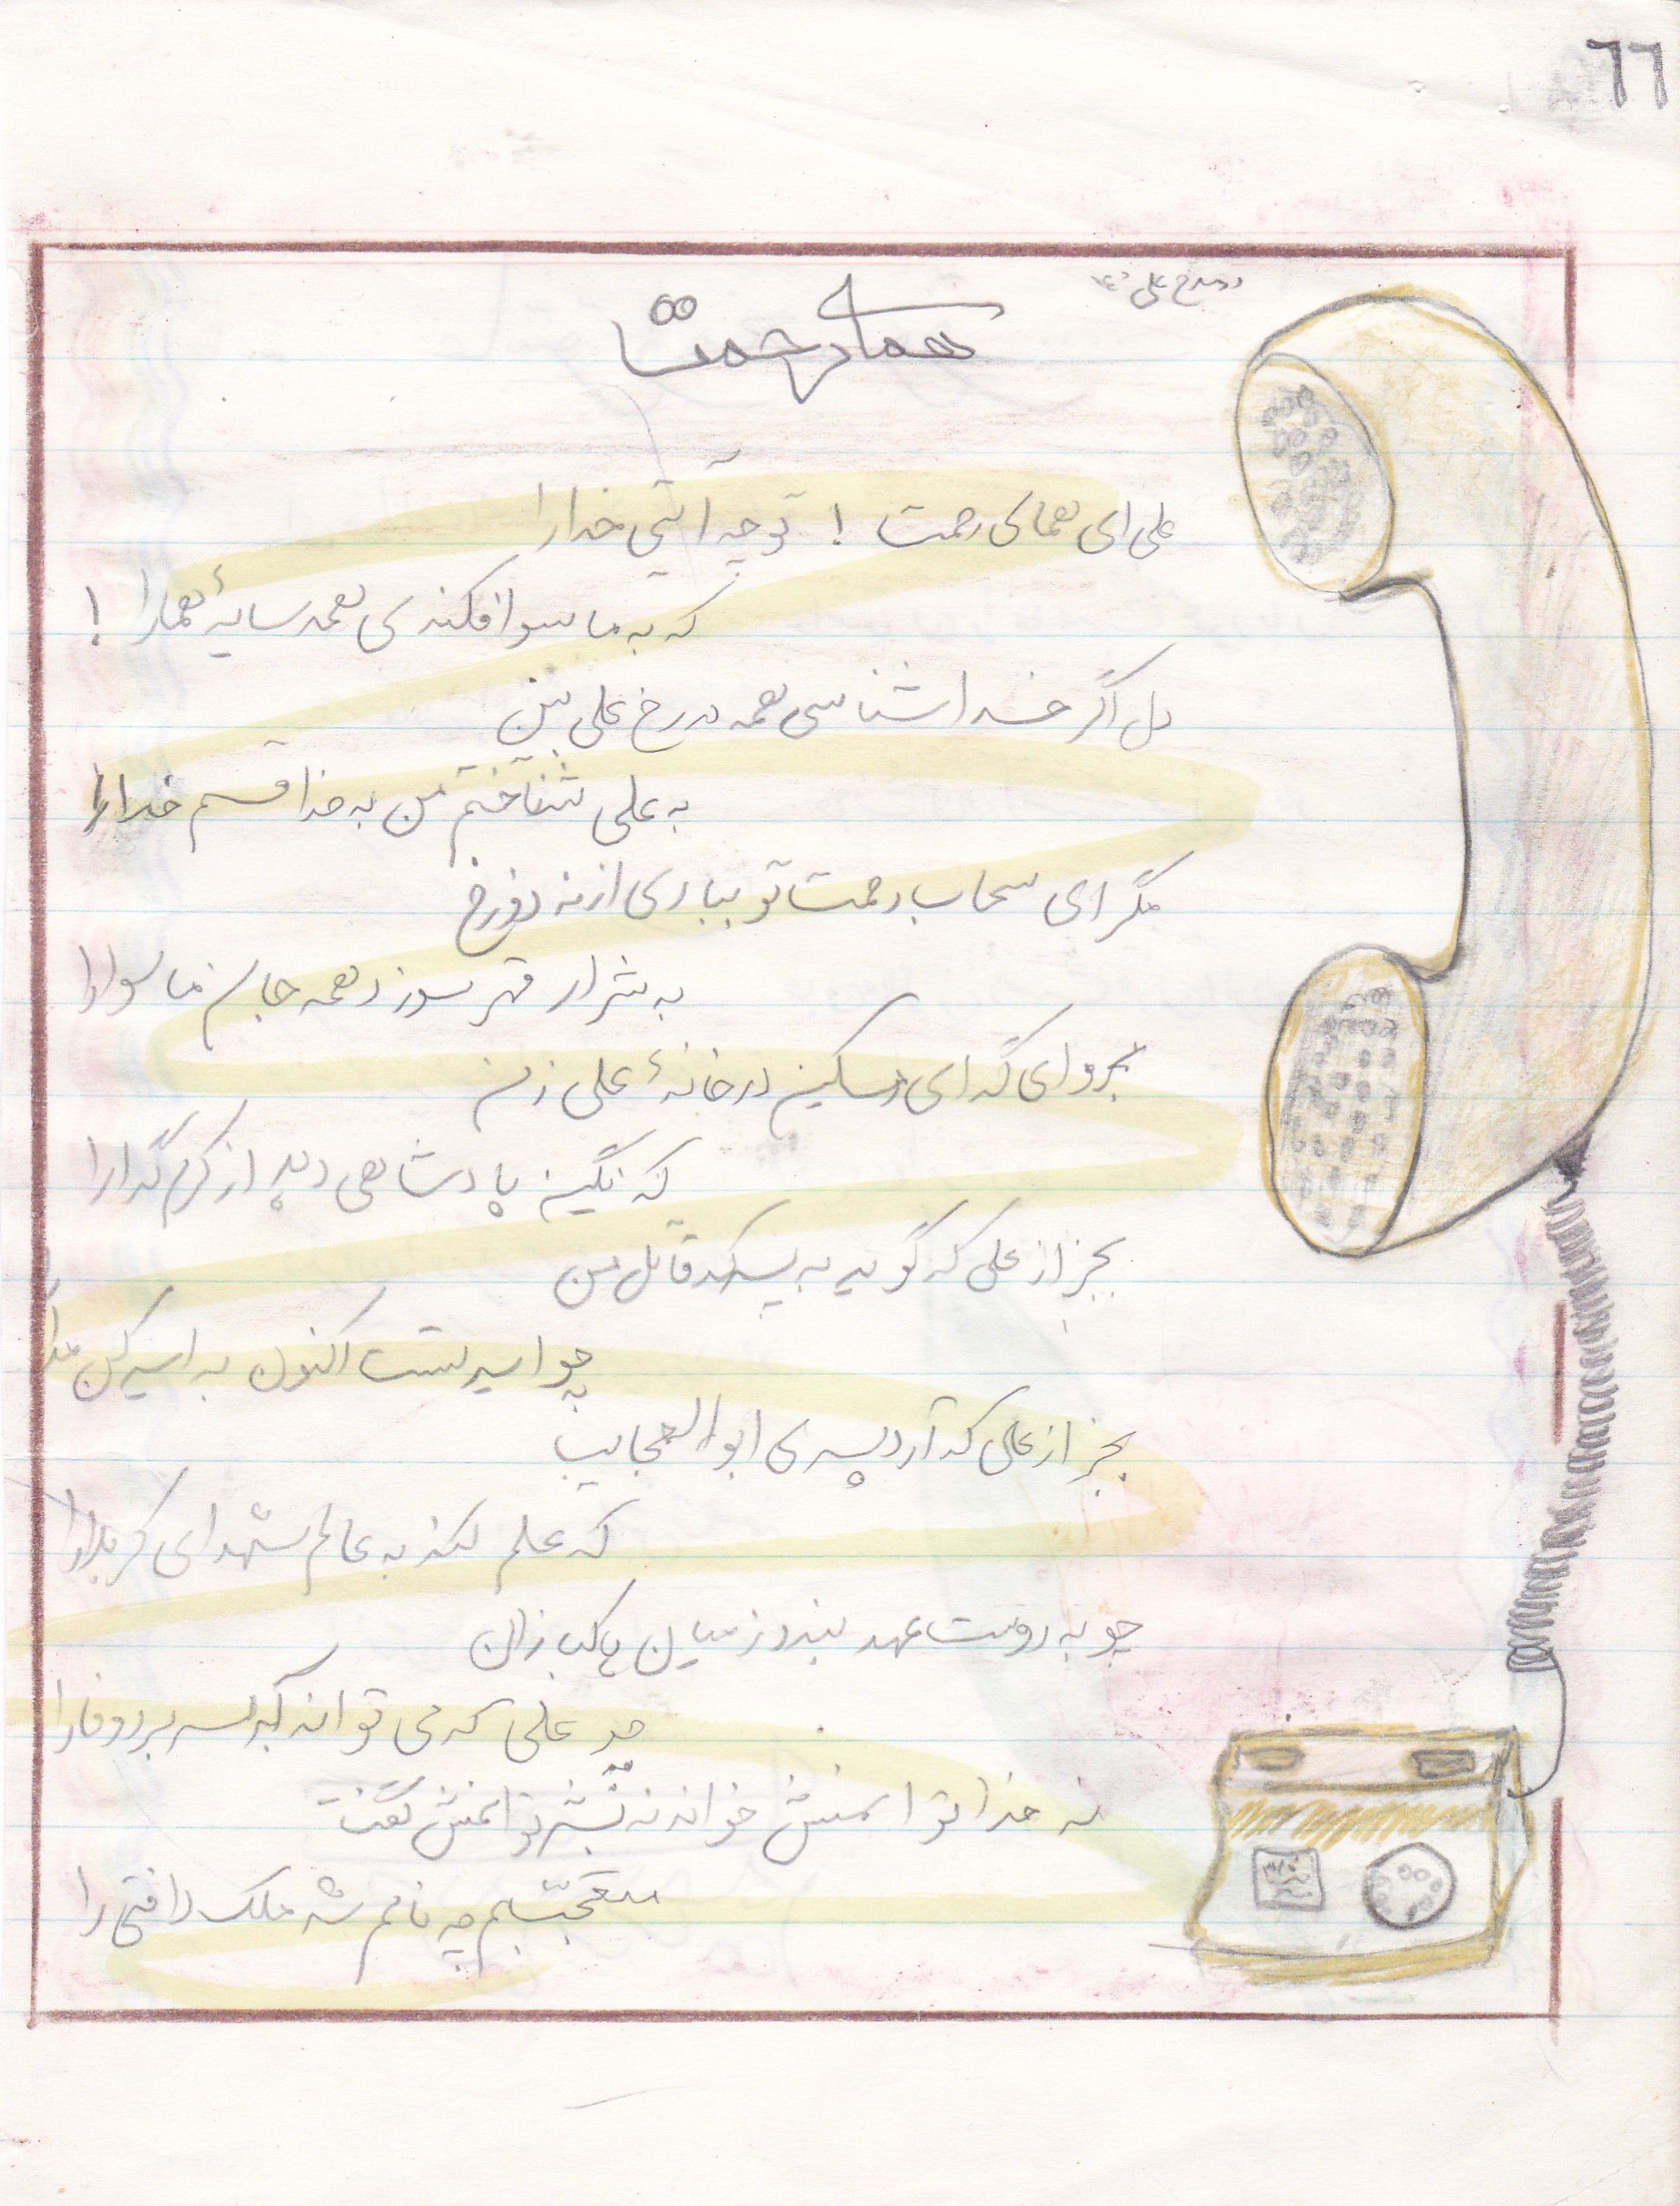 ٦٦
در مدح علی «ع»
همای رحمت
علی ای همای رحمت ! تو چه آیتی خدا را
که به ما سوا فکندی همه سایهٔ هما را !
دل اگر خداشناسی همه در رخ علی بین
به علی شناختم من به خدا قسم خدا را
مگر ای سحاب رحمت تو بباری ارنه دوزخ
به شرار قهر سوزد همه جان ما سوا را
برو ای گدای مسکین در خانهٔ علی زن
که نگین پادشاهی دهد از کرم گدا را
بجز از علی که گوید به پسر که قاتل من
چو اسیر تست اکنون به اسیر کن مدارا
بجز از علی که آرد پسری ابوالعجایب
که علم کند به عالم شهدای کربلا را
چو به دوست عهد بندد ز میان پاکبازان
چو علی که می تواند که بسر برد وفا را
نه خدا توانمش خواند نه بشر توانمش گفت
متحیرم چه نامم شه ملک لافتی را